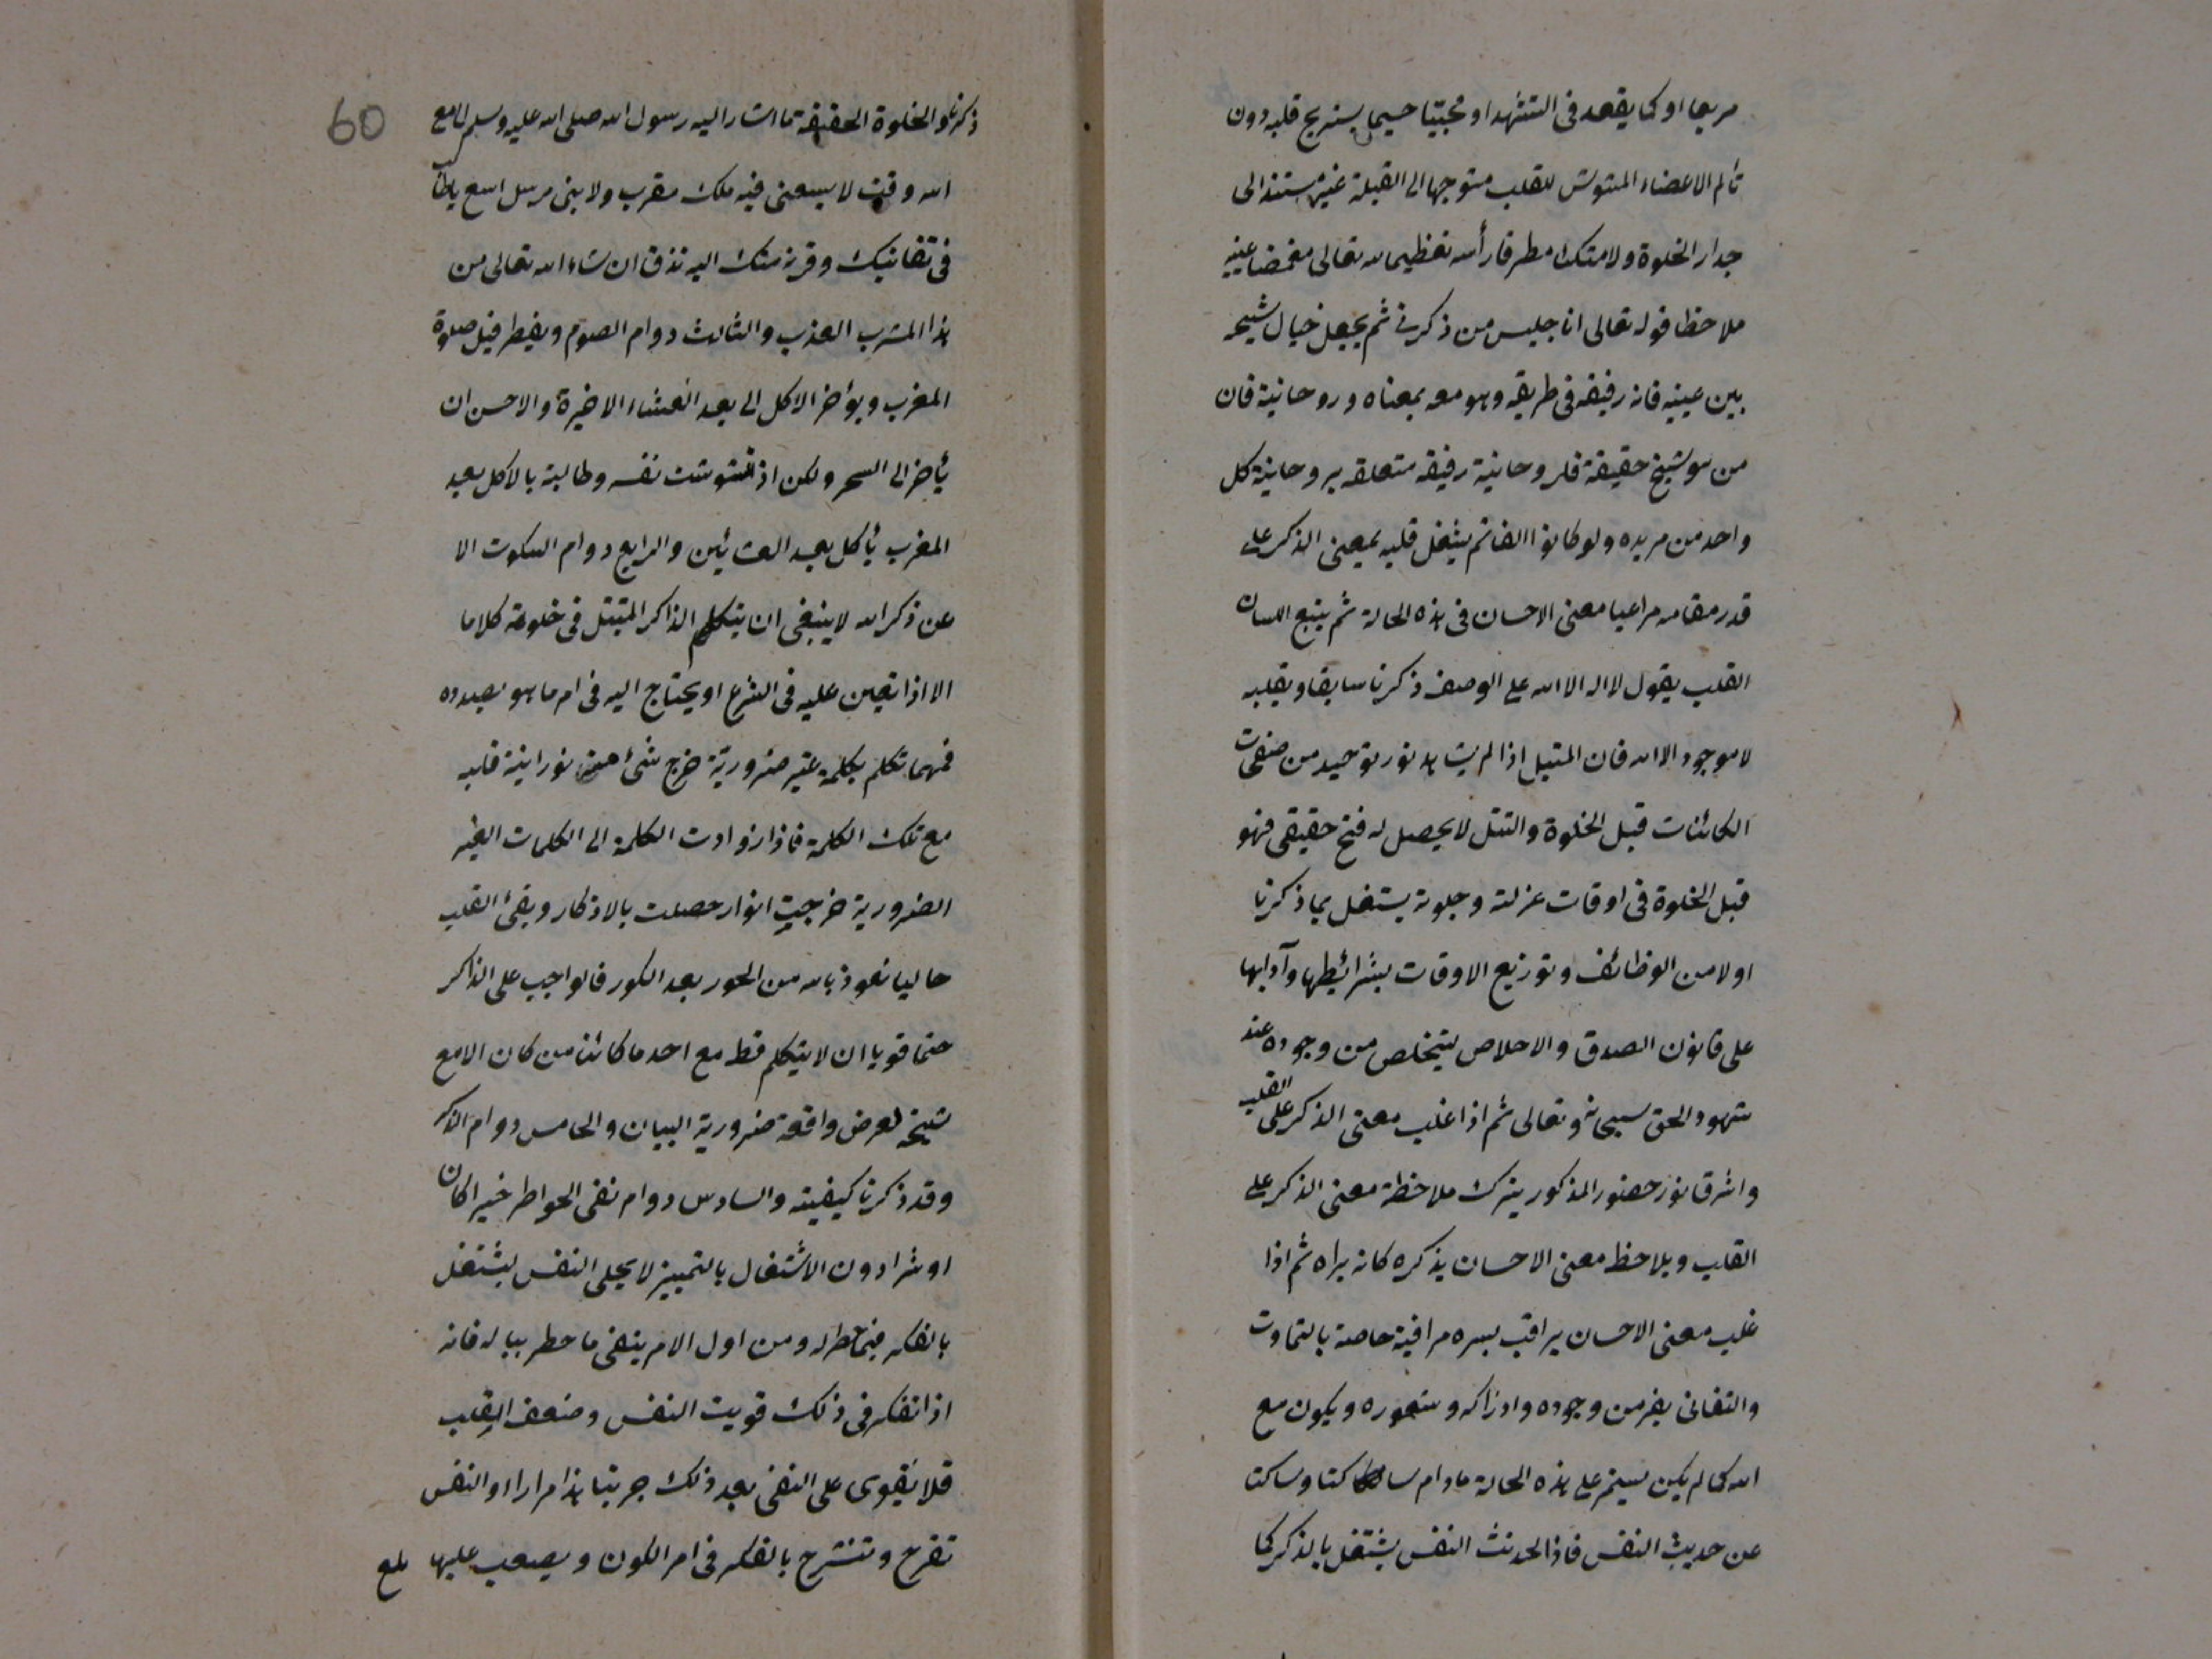 مربعا او كما يقعد فى التشهد او محتبيا حسيما يستريح قلبه دون
تألم الاعضاء المشوش للقلب متوجها الى القبلة غير مستند الى
جدار الخلوة ولا متكئ مطرقا رأسه تعظيما لله تعالى مغمضا عينيه
ملاحظا قوله تعالى انا جليس من ذكرنى ثم يجعل خيال شيخه
بين عينيه فانه رفيقه فى طريقه وهو معه بمعناه وروحانيته فان
من هو شيخ حقيقة فله روحانية رفيقة متعلقه بروحانية كل
واحد من مريده ولو كانوا الفا ثم يشغل قلبه بمعنى الذكر على
قدر مقامه مراعيا معنى الاحسان فى هذه الحالة ثم يتبع اللسان
القلب يقول لا اله الا الله على الوصف ذكرنا سابقا وبقلبه
لا موجود الا الله فان المتبتل اذا لم يشاهد نور توحيد من صفحات
الكائنات قبل الخلوة والتبتل لا يحصل له فتح حقيقى فهو
قبل الخلوة فى اوقات عزلته وجلوته يشتغل بما ذكرنا
اولا من الوظائف وتوزيع الاوقات بشرائطها وآدابها
على قانون الصدق والاخلاص ليتخلص من وجوده عند
شهود الحق سبحانه وتعالى ثم اذا غلب معنى الذكر على القلب
واشرق نور حضور المذكور يترك ملاحظة معنى الذكر على
القلب ويلاحظ معنى الاحسان يذكره كانه يراه ثم اذا
غلب معنى الاحسان يراقب بسره مراقبة خاصة بالتماوت
والتفانى يفر من وجوده وادراكه وشعوره ويكون مع
الله كما لم يكن يستمر على هذه الحالة مادام ساكتا وساكنا
عن حديث النفس فاذا تحدث النفس يشتغل بالذكر كما
ذكرنا والخلوة الحقيقة ما اشار اليه رسول الله صلى الله عليه وسلم لى مع
الله وقت لا يسعنى فيه ملك مقرب ولا نبى مرسل اسع يا طالب
فى تفانيك وقربتك اليه تذق ان شاء الله تعالى من
هذا المشرب العذب والثالث دوام الصوم ويفطر قبل صلوة
المغرب ويؤخر الاكل الى بعد العشاء الاخيرة والاحسن ان
يأخر الى السحر ولكن اذا تشوشت نفسه وطالبته بالاكل بعد
المغرب يأكل بعد العشائين والرابع دوام السكوت الا
عن ذكر الله لا ينبغى ان يتكلم الذاكر المتبتل فى خلوته كلاما
الا اذا تعين عليه فى الشرع او يحتاج اليه فى امر ما هو بصدده
فمهما تكلم بكلمة غير ضرورية خرج شئ من نورانية قلبه
مع تلك الكلمة فاذا ازدادت الكلمة الى الكلمات الغير
الضرورية خرجت انوار حصلت بالاذكار وبقى القلب
خاليا نعوذ بالله من الحور بعد الكور فالواجب على الذاكر
حتما قويا ان لا يتكلم قط مع احد ما كائنا من كان الا مع
شيخه لعرض واقعة ضرورية البيان والخامس دوام الذكر
وقد ذكرنا كيفيته والسادس دوام نفى الخواطر خيرا كان
او شرا دون الاشتغال بالتمييز لا يخلى النفس ليشتغل
بالفكر فيما خطر له ومن اول الامر ينفى ما خطر بباله فانه
اذا تفكر فى ذلك قويت النفس وضعف القلب
فلا يقوى على النفى بعد ذلك جربنا هذا مرارا والنفس
تفرح وتنشرح بالفكر فى امر الكون ويصعب عليها
60